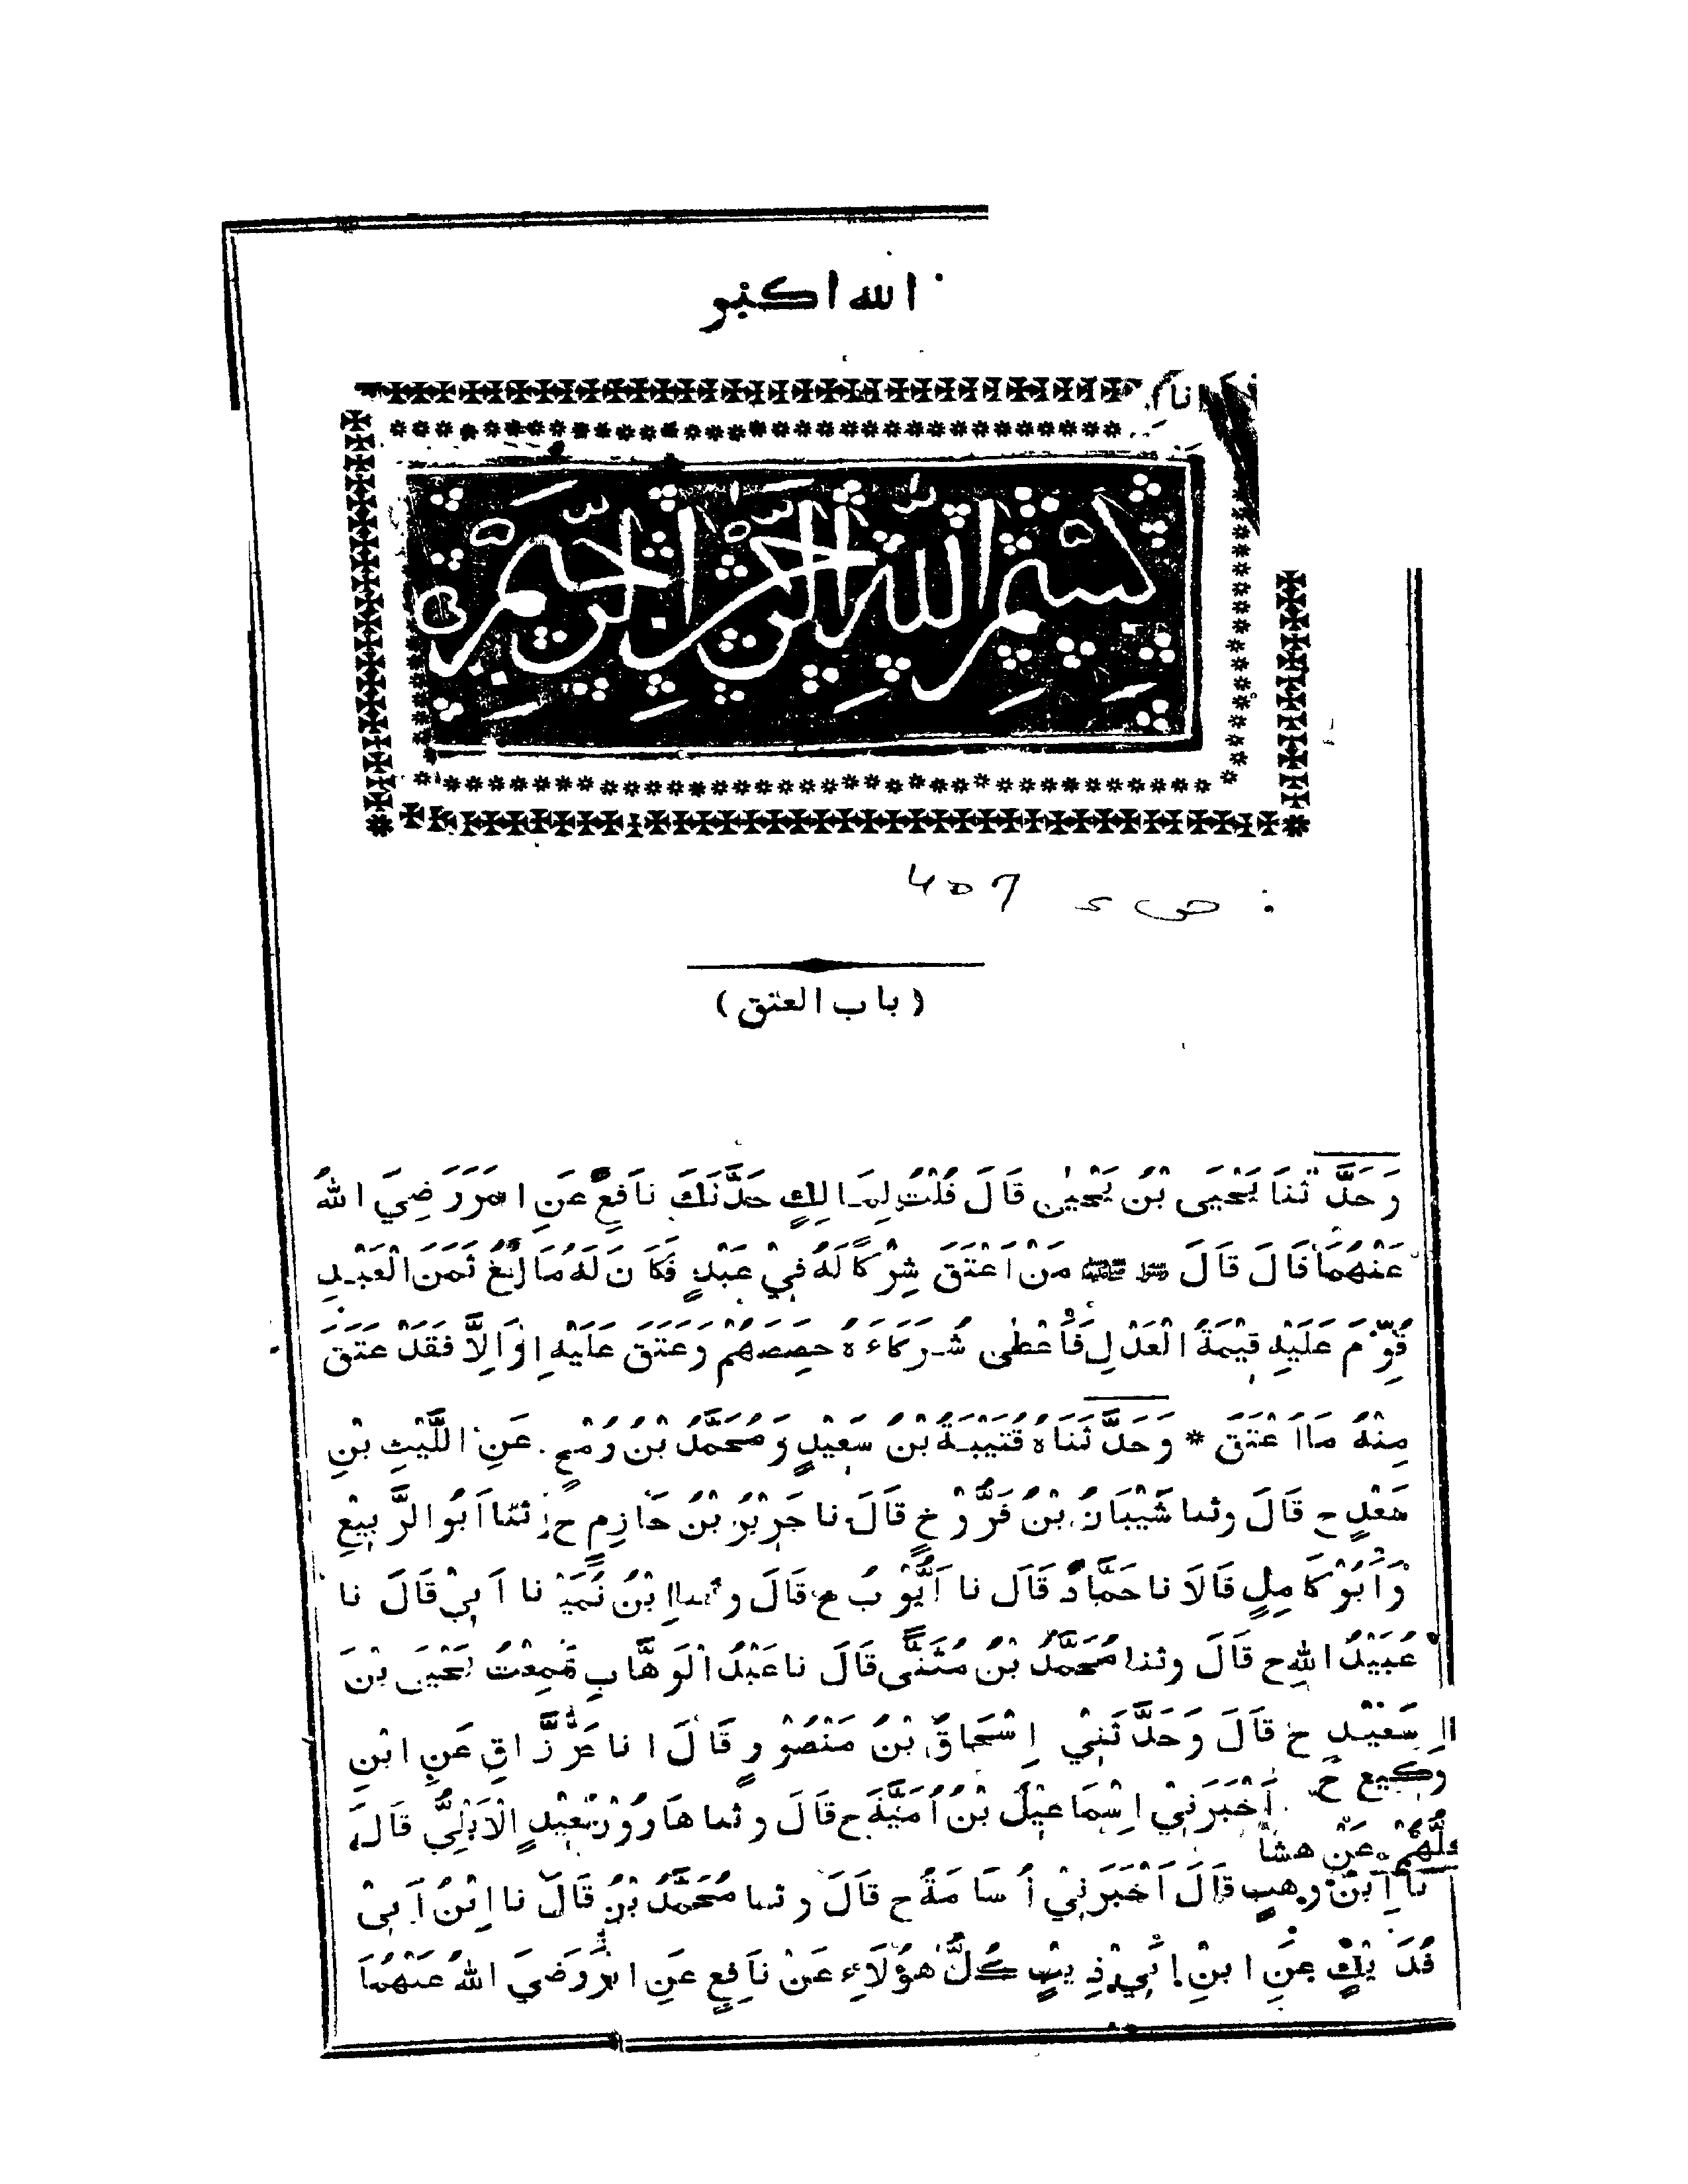 الله اكبر
بِسْمِ اللهِ الرَّحْمٰنِ الرَّحِيْمِ
(باب العتق)
وَحَدَّثَنَا يَحْيَى بْنُ يَحْيٰى قَالَ قُلْتُ لِمَالِكٍ حَدَّثَكَ نَافِعٌ عَنِ رَضِيَ اللهُ
عَنْهُمَا قَالَ قَالَ رسول ﷺ مَنْ اَعْتَقَ شِرْكًا لَهُ فِيْ عَبْدٍ فَكَانَ لَهُ مَالٌ يَبْلُغُ ثَمَنَ الْعَبْدِ
قُوِّمَ عَلَيْهِ قِيْمَةَ الْعَدْلِ فَاَعْطٰى شُرَكَاءَهُ حِصَصَهُمْ وَعَتَقَ عَلَيْهِ وَاِلَّا فَقَدْ عَتَقَ
مِنْهُ مَا اَعْتَقَ * وَحَدَّثَنَاهُ قُتَيْبَةُ بْنُ سَعِيْدٍ وَمُحَمَّدُ بْنُ رُمْحٍ عَنِ اللَّيْثِ بْنِ
سَعْدٍ ح قَالَ وثنا شَيْبَانُ بْنُ فَرُّوْخٍ قَالَ نا جَرِيْرُ بْنُ حَازِمٍ ح ثنا اَبُوالرَّبِيْعِ
وَاَبُوْ كَامِلٍ قَالَا نا حَمَّادٌ قَالَ نا اَيُّوْبُ ح قَالَ وثنا اِبْنُ نُمَيْرٍ نا اَبِيْ قَالَ نا
عُبَيْدُ اللهِ ح قَالَ وثنا مُحَمَّدُ بْنُ مُثَنًّى قَالَ نا عَبْدُ الْوَهَّابِ سَمِعْتُ يَحْيَى بْنَ
سَعِيْدٍ ح قَالَ وَحَدَّثَنِيْ اِسْحَاقُ بْنُ مَنْصُوْرٍ قَالَ انا عَزَّزَّاقِ عَنِ ابْنِ
وكيع ح
اَخْبَرَنِيْ اِسْمَاعِيْلُ بْنُ اُمَيَّةَ ح قَالَ وثنا هَارُوْنُ سَعِيْدٍ الْاَيْلِيُّ قَالَ
كلُّهُمْ عَنْ هشا
نا اِبْنُ وهبٍ قَالَ اَخْبَرَنِيْ اُسَامَةُ ح قَالَ وثنا مُحَمَّدُ بْنُ قَالَ نا اِبْنُ اَبِيْ
فُدَيْكٍ عَنِ ابْنِ اَبِيْ ذِيْبٍ كُلُّ هٰؤُلَاءِ عَنْ نَافِعٍ عَنِ رَضِيَ اللهُ عَنْهُمَا